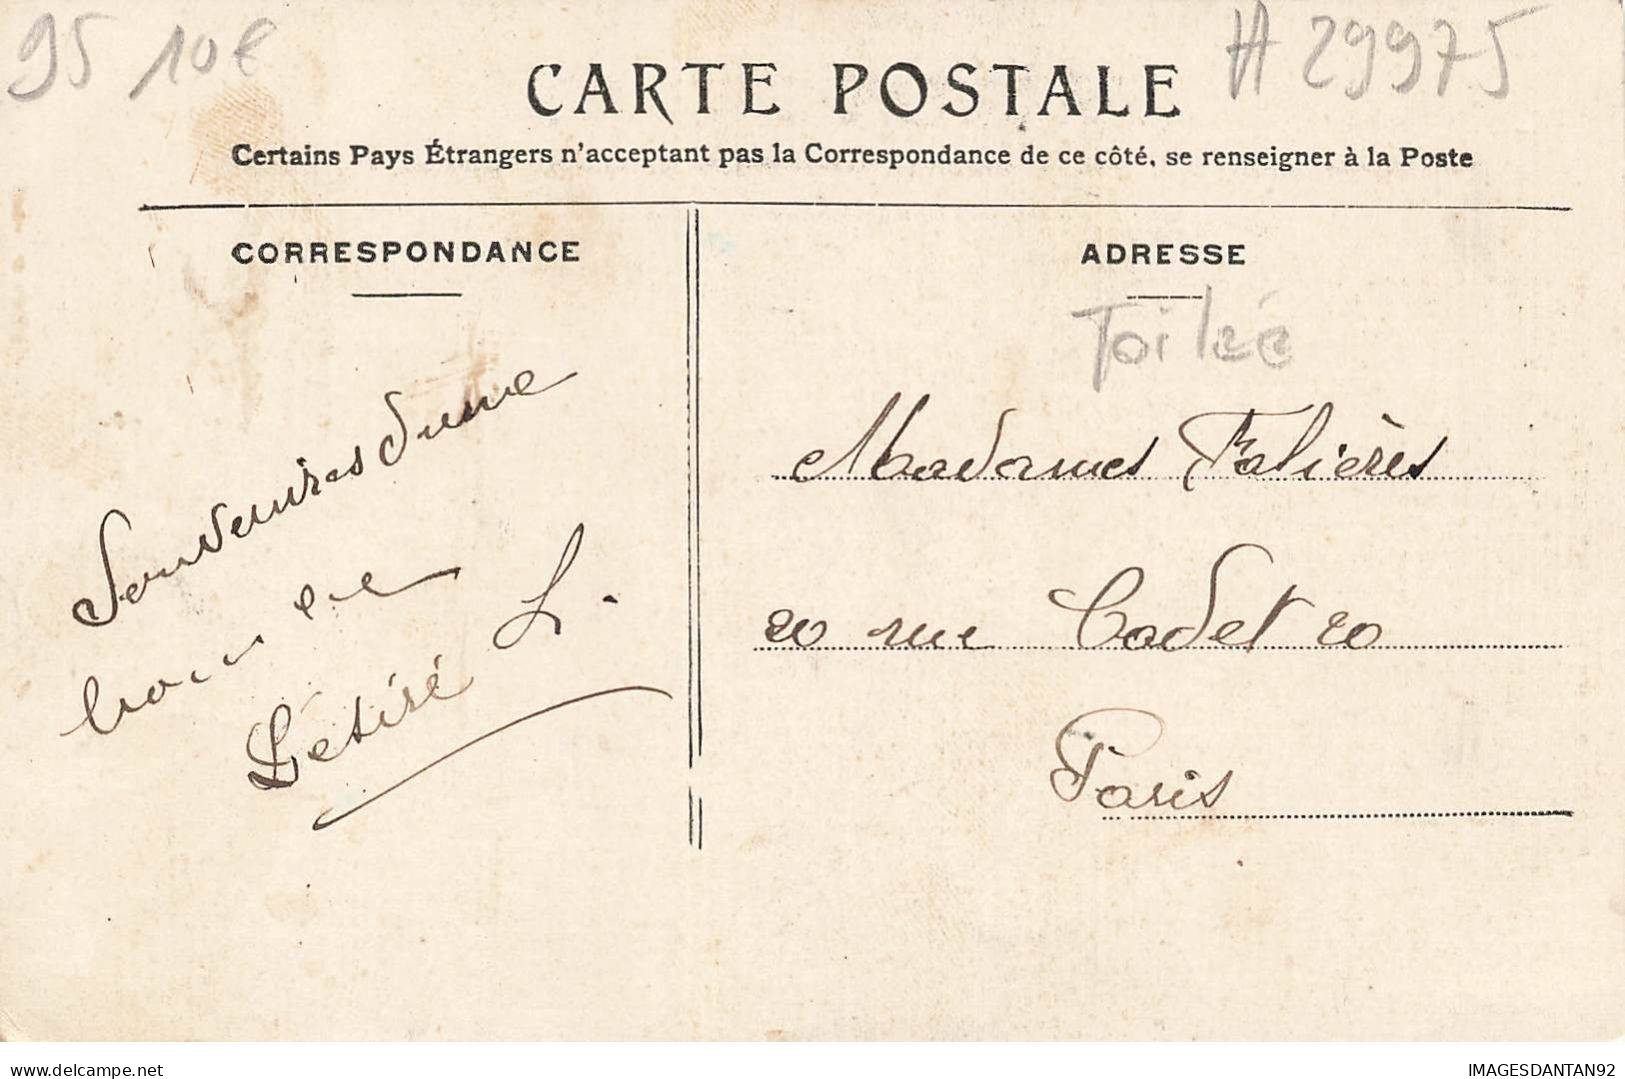 95 10€
# 29975
CARTE POSTALE
Certains Pays Étrangers n'acceptant pas la Correspondance de ce côté, se renseigner à la Poste
CORRESPONDANCE
Souvenires dune
L.
Désiré
ADRESSE
Toilée
Madames Falières
20 rue Cadet 20
Paris
www.delcampe.net
IMAGESDANTAN92